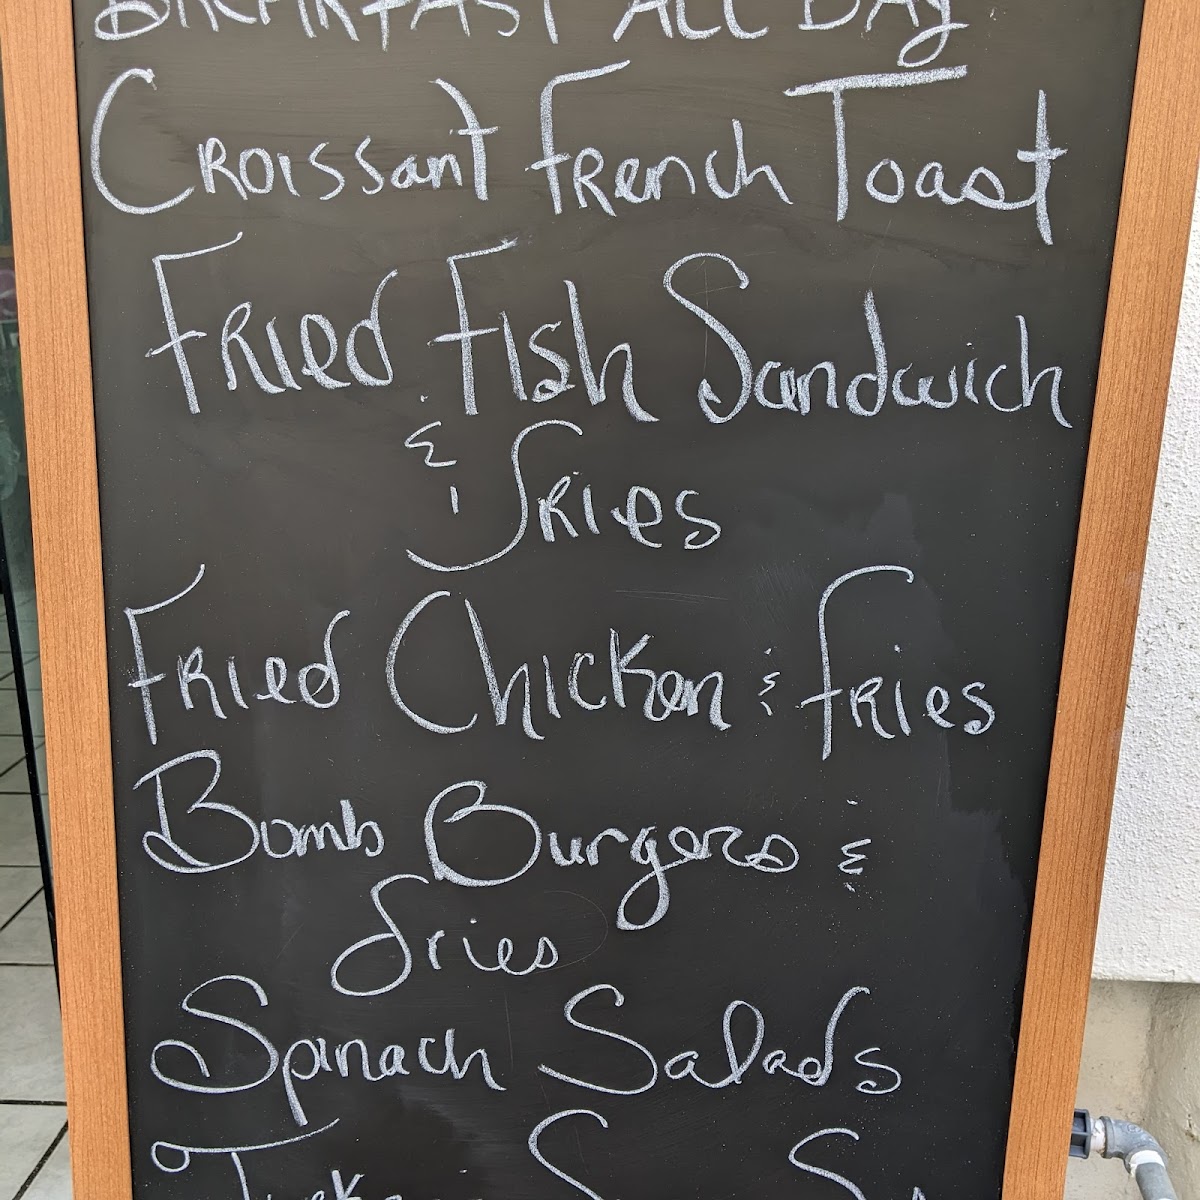 BREAKFAST ALL DAY
CROISSANT FRENCH TOAST
FRIED FISH Sandwich
& FRIES
FRIED CHICKEN & FRIES
Bomb Burgers &
fries
Spinach Salads